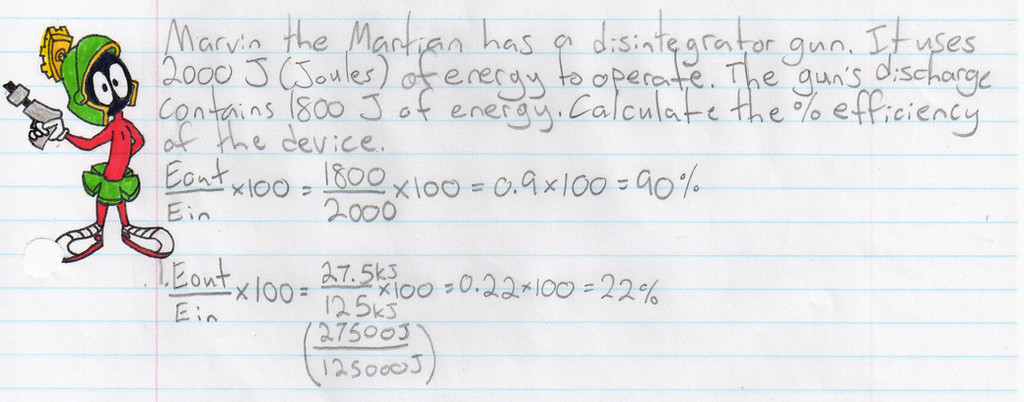 Marvin the Martian has a disintegrator gun. It uses
2000 J (Joules) of energy to operate. The gun's discharge
contains 1800 J of energy. Calculate the % efficiency
of the device.
Eout/Ein ×100 = 1800/2000 ×100 = 0.9×100 = 90%
1. Eout/Ein ×100 = 27.5kJ/125kJ ×100 = 0.22×100 = 22%
(27500J/125000J)